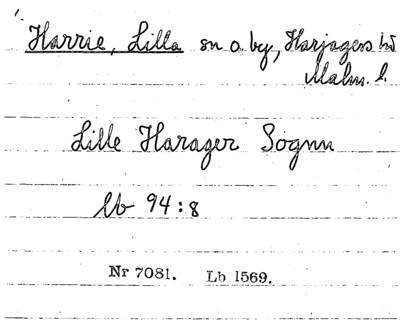 Harrie, Lilla sn o. by, Harjagers hd
Malm. l.
Lille Harager Sognn
lb 94:8
Nr 7081. Lb 1569.